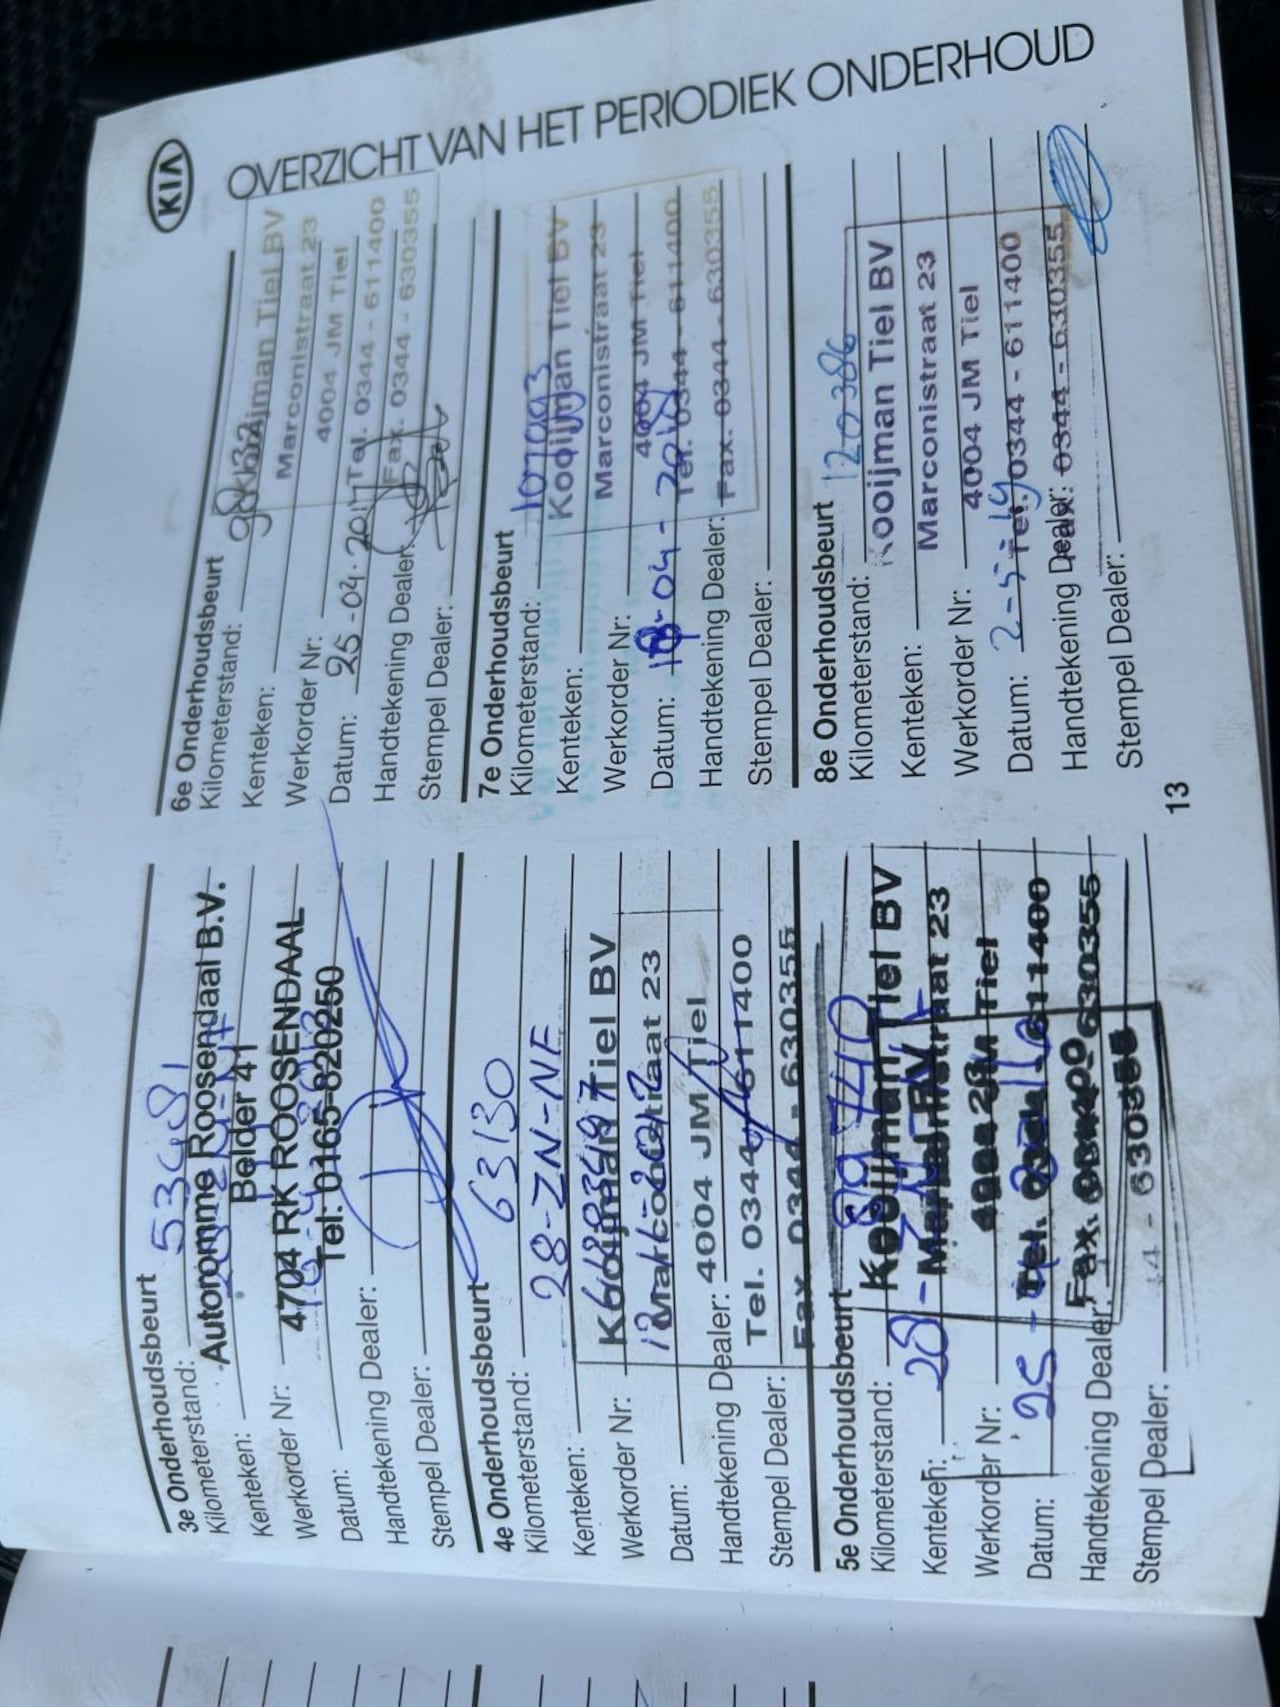 KIA
OVERZICHT VAN HET PERIODIEK ONDERHOUD
3e Onderhoudsbeurt
Kilometerstand: 53481
Autonomme Roosendaal B.V.
Kenteken:
Belder 41
Werkorder Nr:
4704 RK ROOSENDAAL
Datum:
Tel. 0165-820250
Handtekening Dealer:
Stempel Dealer:
4e Onderhoudsbeurt
Kilometerstand: 63130
Kenteken: 28-ZN-NF
Werkorder Nr:
Kooijman Tiel BV
Datum:
Marconistraat 23
Handtekening Dealer: 4004 JM Tiel
Stempel Dealer: Tel. 0344 - 611400
Fax. 0344 - 630355
5e Onderhoudsbeurt
Kilometerstand: 89740
Kooijman Tiel BV
Kenteken:
Marconistraat 23
Werkorder Nr:
4004 JM Tiel
Datum:
Tel. 0344 - 611400
Handtekening Dealer:
Fax. 0344 - 630355
Stempel Dealer:
6e Onderhoudsbeurt
Kilometerstand:
Kooijman Tiel BV
Kenteken:
Marconistraat 23
Werkorder Nr:
4004 JM Tiel
Datum: 25-04-2017
Tel. 0344 - 611400
Handtekening Dealer:
Fax. 0344 - 630355
Stempel Dealer:
7e Onderhoudsbeurt
Kilometerstand: 107993
Kooijman Tiel BV
Kenteken:
Marconistraat 23
Werkorder Nr:
4004 JM Tiel
Datum:
Tel. 0344 - 611400
Handtekening Dealer:
Fax. 0344 - 630355
Stempel Dealer:
8e Onderhoudsbeurt
Kilometerstand: 120386
Kooijman Tiel BV
Kenteken:
Marconistraat 23
Werkorder Nr:
4004 JM Tiel
Datum: 2-5-19
Tel. 0344 - 611400
Handtekening Dealer:
Fax. 0344 - 630355
Stempel Dealer:
13